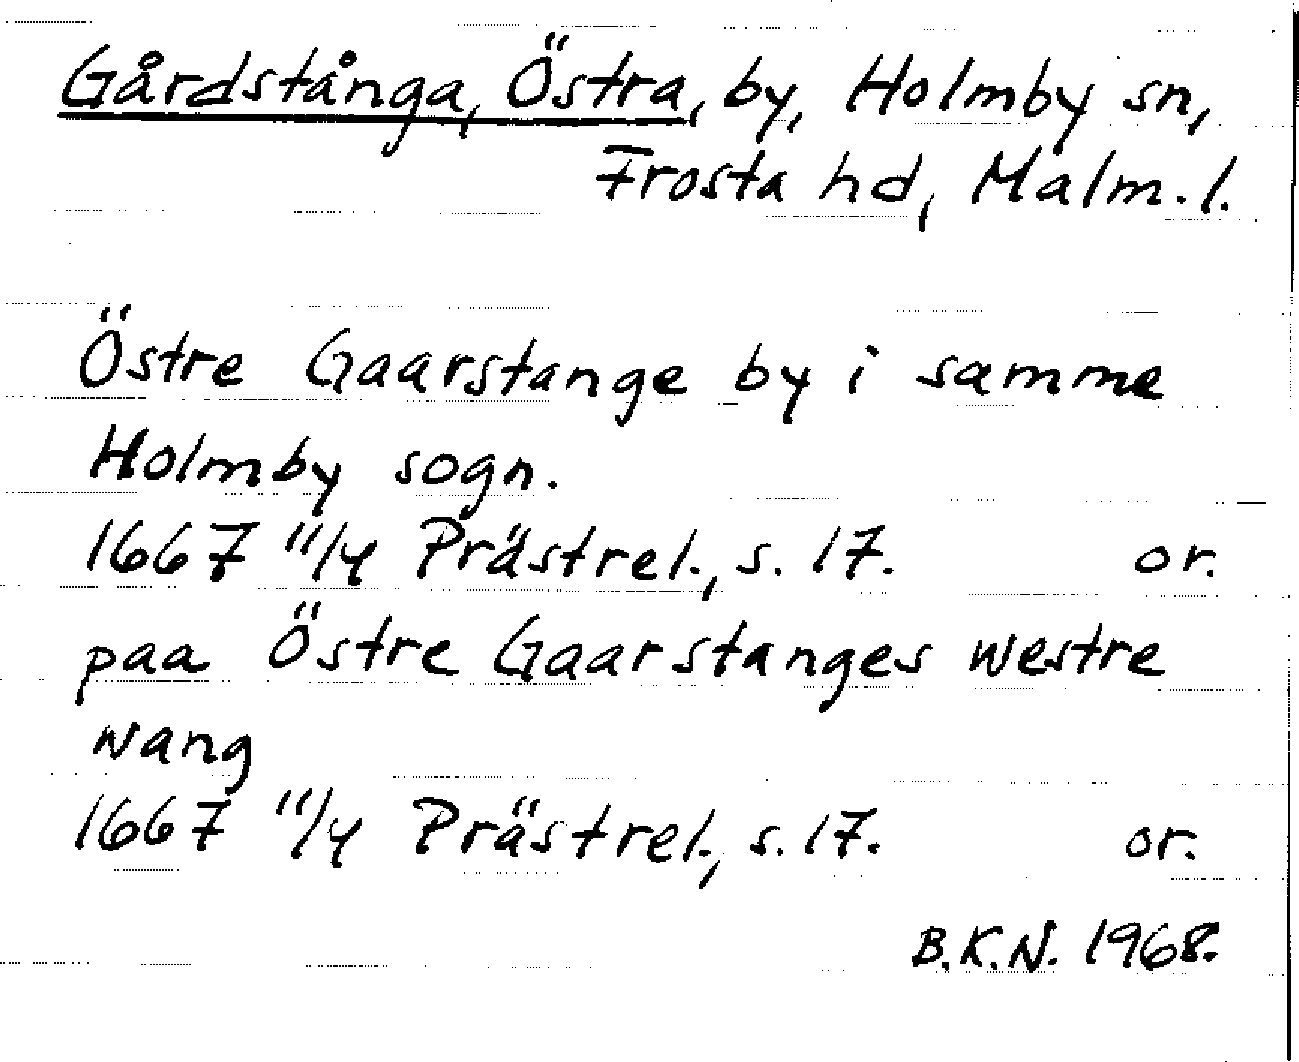 Gårdstånga, Östra, by, Holmby sn,
Frosta hd, Malm.l.
Östre Gaarstange by i samme
Holmby sogn.
1667 11/4 Prästrel., s. 17. or.
paa Östre Gaarstanges westre
wang
1667 11/4 Prästrel., s. 17. or.
B.K.N. 1968.